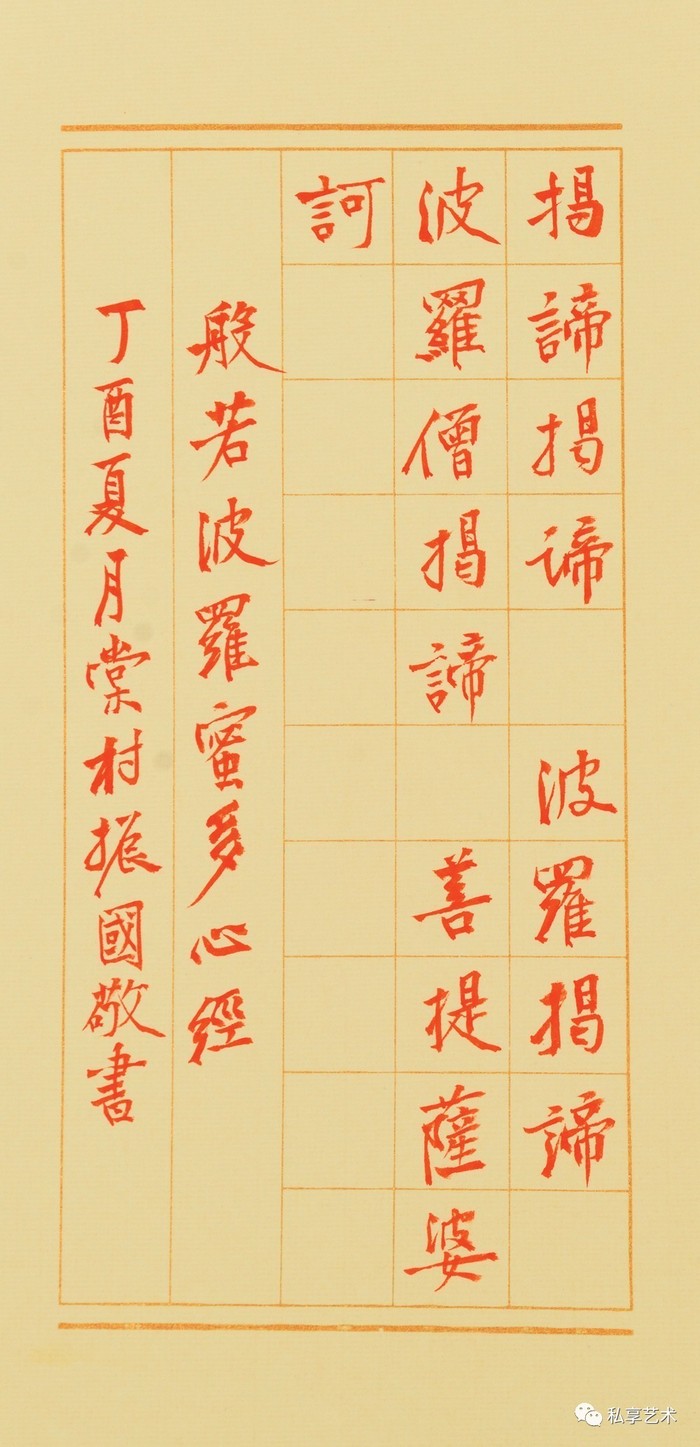 揭諦揭諦 波羅揭諦
波羅僧揭諦 菩提薩婆
訶
般若波羅蜜多心經
丁酉夏月棠村振國敬書
私享艺术